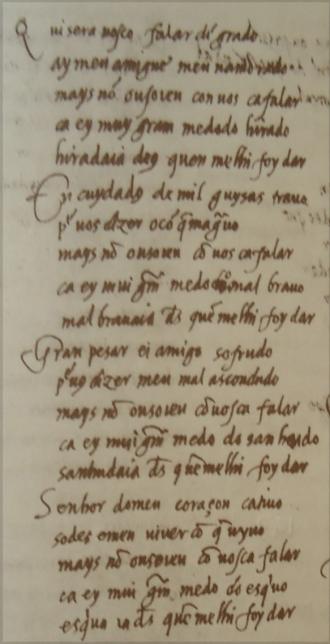 Q uisera uosco falar de grado
ay meu amigue meu namorado
mays nõ ousoieu con uos a falar
ca ey muy gram medo do hirado
hiradaia deꝯ quen melhi foy dar
En cuydados de mil guysas trauo
pʳ uos dizer o cõ q̃ magˢuo
mays nõ ousoieu cõ uos a falar
ca ey mui gˢm medo do mal brauo
mal brauaia dš quē melhi foy dar
Gran pesar ei amigo sofrudo
pʳ uꝯ dizer meu mal ascondudo
mays nõ ousoieu cõuosca falar
ca ey mui gˢm medo do sanhudo
sanhudaia dš quē melhi foy dar
Senhor do meu coraçon catiuo
sodes e meu uiuer cõ q̃ uyuo
mays nõ ousoieu cõ uosca falar
ca ey mui gˢm medo do esqˢuo
esqˢua ia dš quē melhi foy dar